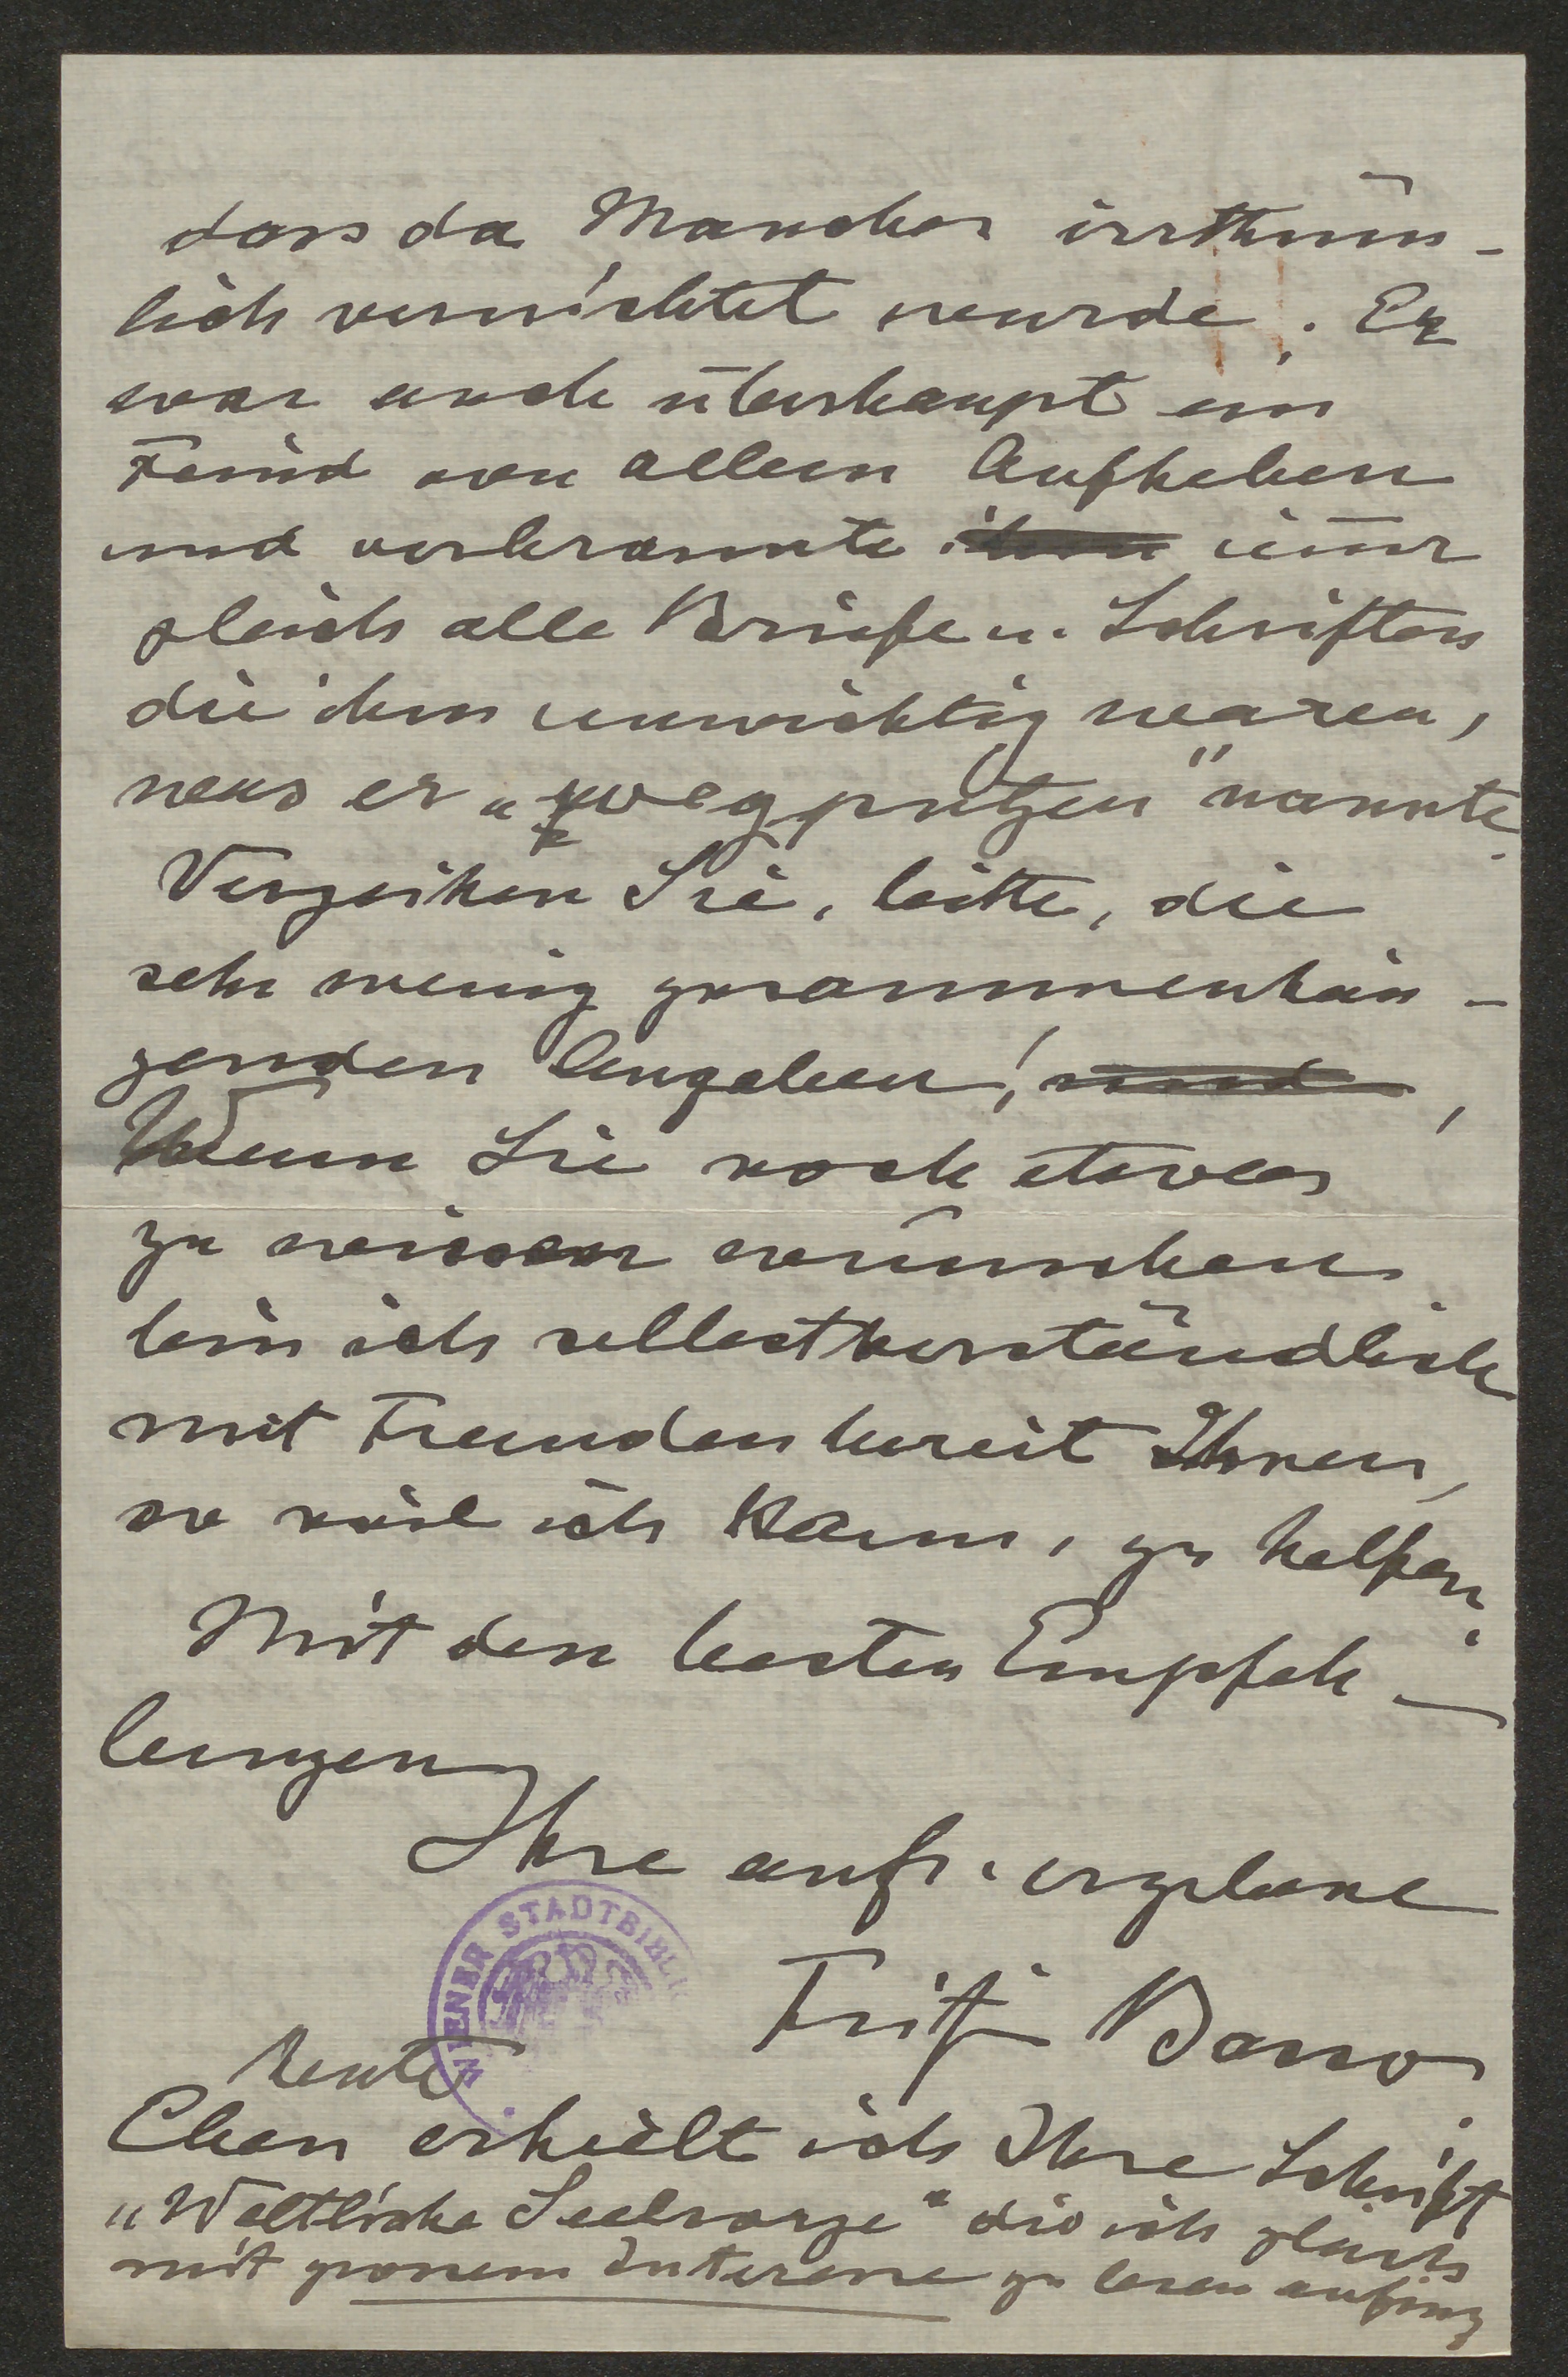 dass da Manches irrthüm-
lich vernichtet wurde. Er
war auch überhaupt ein
Feind von allem Aufheben
und verbrannte im̄er
gleich alle Briefe u. Schriften
die ihm unwichtig waren,
was er „wegputzen" nannte.
Verzeihen Sie, bitte, die
sehr wenig zusammenhän-
genden Angaben! und
Wenn Sie noch etwas
zu wissen wünschen
bin ich selbstverständlich
mit Freuden bereit Ihnen,
so viel ich kann, zu helfen.
Mit den besten Empfeh-
lungen
Ihre aufr. ergebene
WIENER STADTBIBL
heute
Eben erhielt ich Ihre Schrift
„Weltliche Seelsorge" die ich gleich
mit grossem Interesse zu lesen anfing